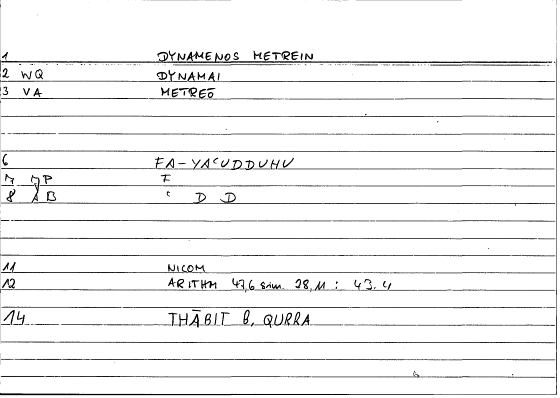 1 DYNAMENOS METREIN
2 WQ DYNAMAI
3 VA METREŌ
6 FA-YAʿUDDUHU
7 P F
8 AB ʿ D D
11 NICOM
12 ARITHM 47,6 sim. 28,11 : 43.4
14 THĀBIT B, QURRA